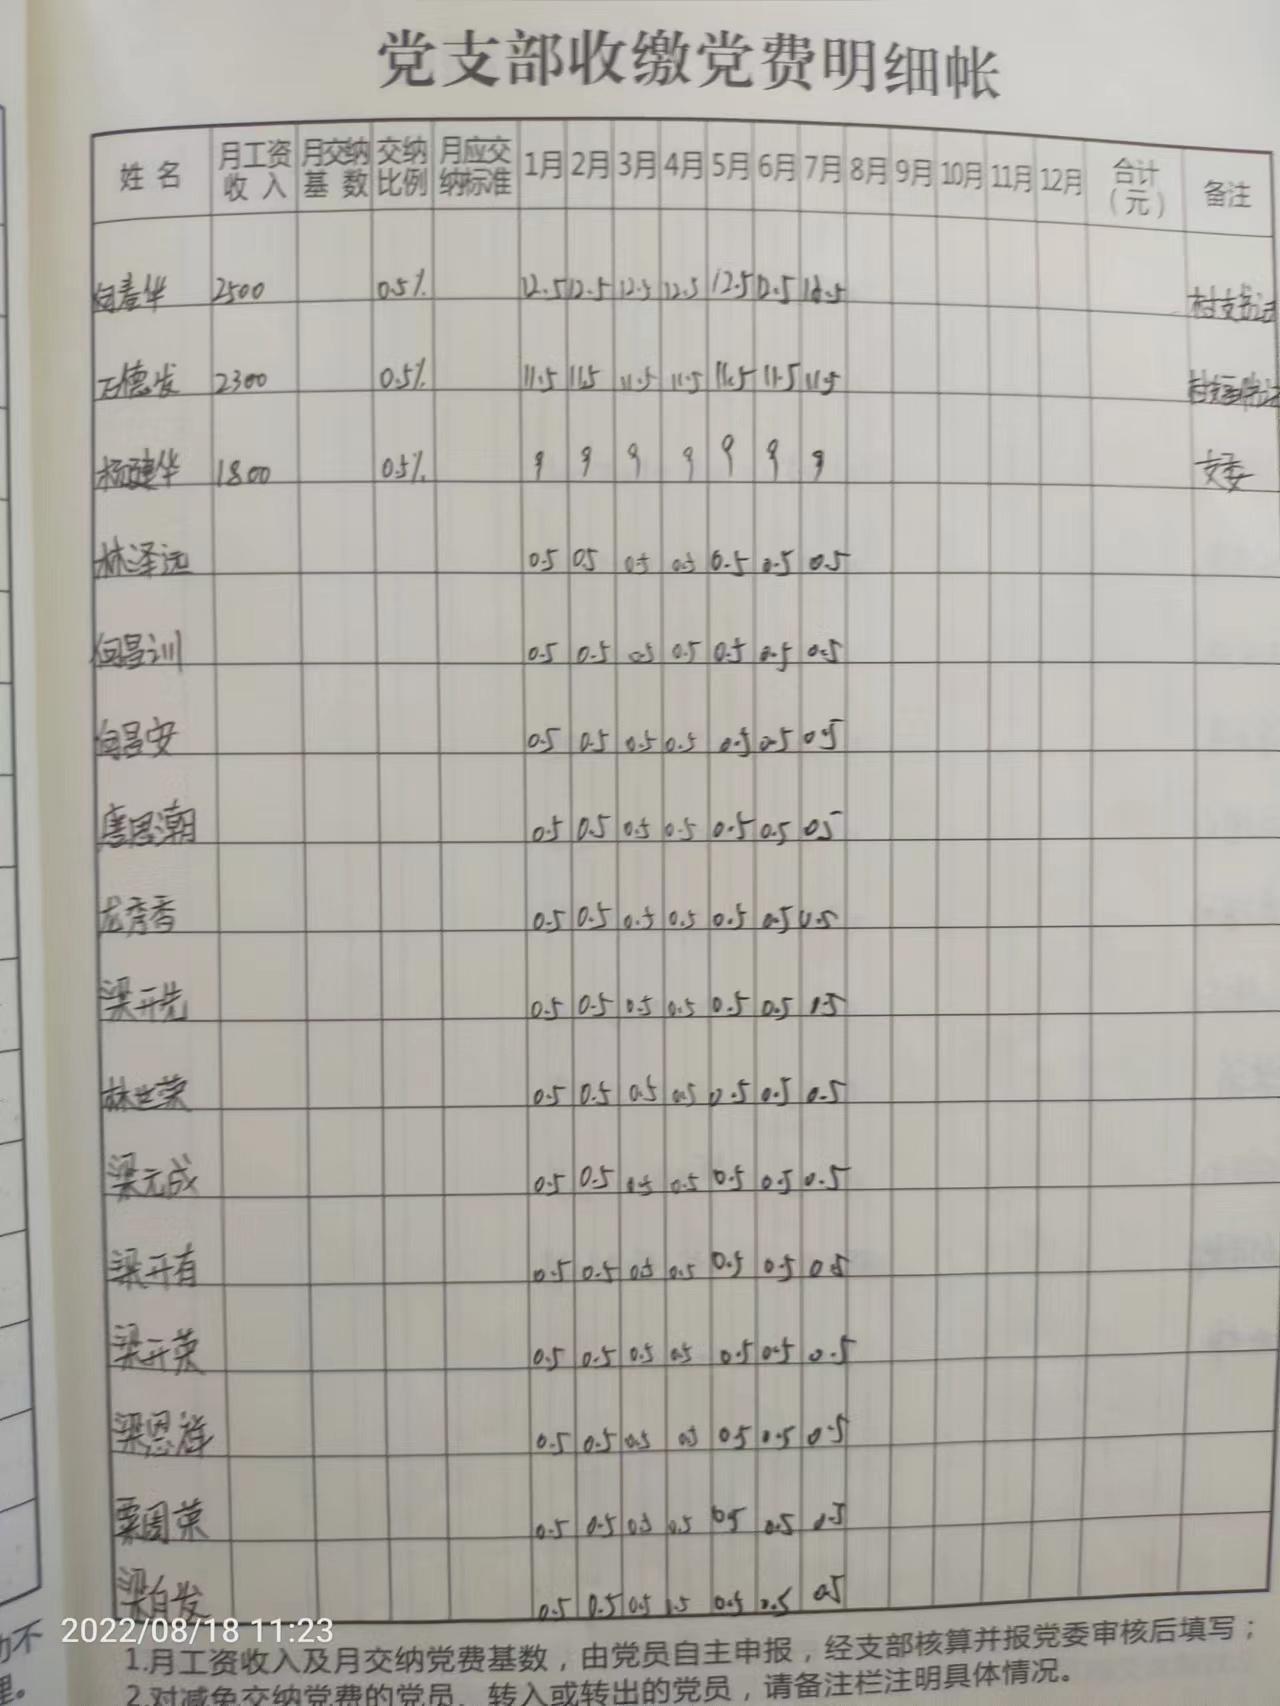 党支部收缴党费明细帐
姓名 月工资收入 月交纳基数 交纳比例 月应交纳标准 1月 2月 3月 4月 5月 6月 7月 8月 9月 10月 11月 12月 合计（元） 备注
2500 0.5% 12.5 12.5 12.5 12.5 12.5 12.5 12.5 村支书记
石德发 2300 0.5% 11.5 11.5 11.5 11.5 11.5 11.5 11.5
杨建华 1800 0.5% 9 9 9 9 9 9 9 支委
林泽远 0.5 0.5 0.5 0.5 0.5 0.5 0.5
向昌训 0.5 0.5 0.5 0.5 0.5 0.5 0.5
向昌安 0.5 0.5 0.5 0.5 0.5 0.5 0.5
唐恩潮 0.5 0.5 0.5 0.5 0.5 0.5 0.5
龙秀香 0.5 0.5 0.5 0.5 0.5 0.5 0.5
梁开先 0.5 0.5 0.5 0.5 0.5 0.5 0.5
林世荣 0.5 0.5 0.5 0.5 0.5 0.5 0.5
梁元成 0.5 0.5 0.5 0.5 0.5 0.5 0.5
梁开有 0.5 0.5 0.5 0.5 0.5 0.5 0.5
梁开荣 0.5 0.5 0.5 0.5 0.5 0.5 0.5
梁恩祥 0.5 0.5 0.5 0.5 0.5 0.5 0.5
粟周荣 0.5 0.5 0.5 0.5 0.5 0.5 0.5
梁自发 0.5 0.5 0.5 0.5 0.5 0.5 0.5
2022/08/18 11:23
1.月工资收入及月交纳党费基数，由党员自主申报，经支部核算并报党委审核后填写；
2.对减免交纳党费的党员、转入或转出的党员，请备注栏注明具体情况。